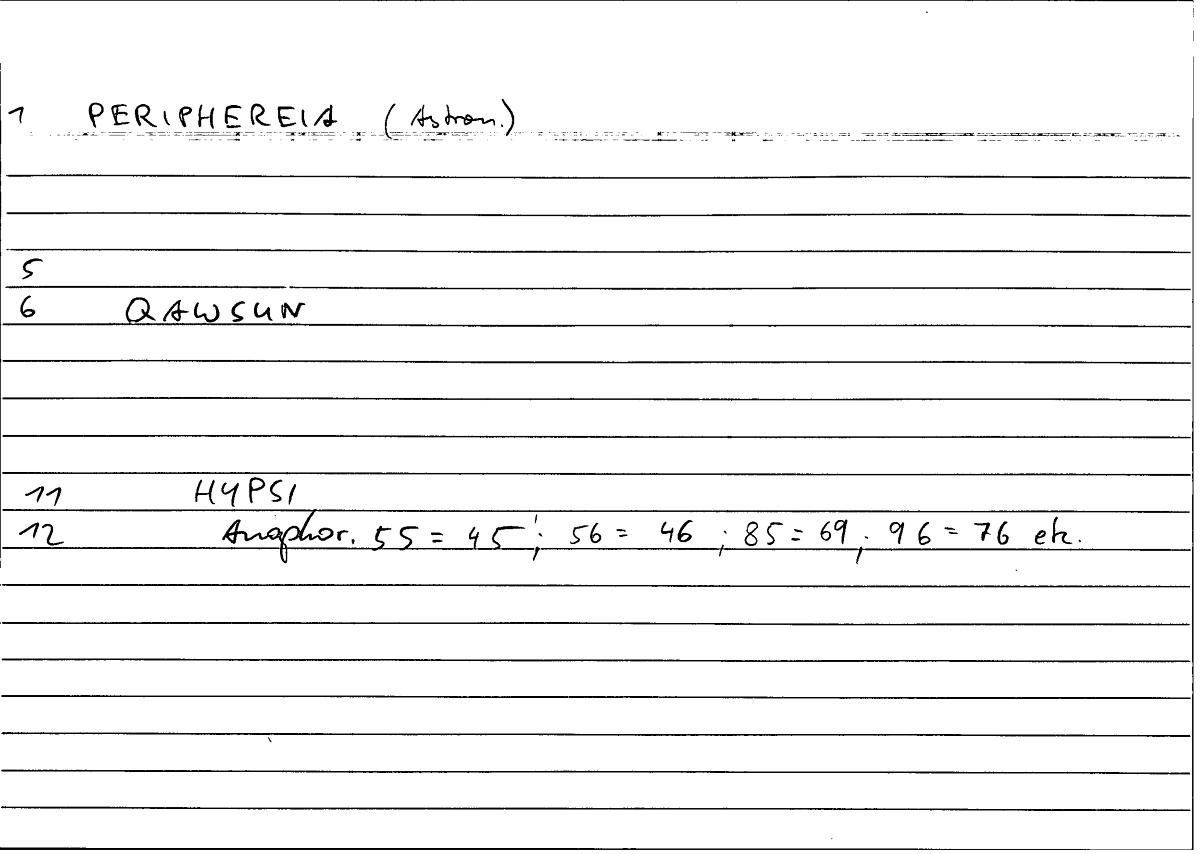 1 PERIPHEREIA (Astron.)
5
6 QAWSUN
11 HYPSI
12 Anaphor. 55 = 45; 56 = 46; 85 = 69; 96 = 76 etc.